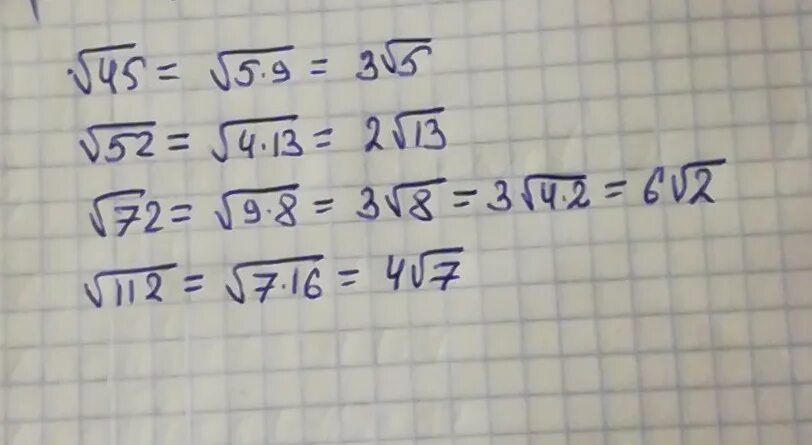 √45 = √5·9 = 3√5
√52 = √4·13 = 2√13
√72 = √9·8 = 3√8 = 3√4·2 = 6√2
√112 = √7·16 = 4√7